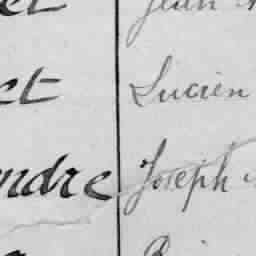 et Jean
et Lucien
ndre Joseph